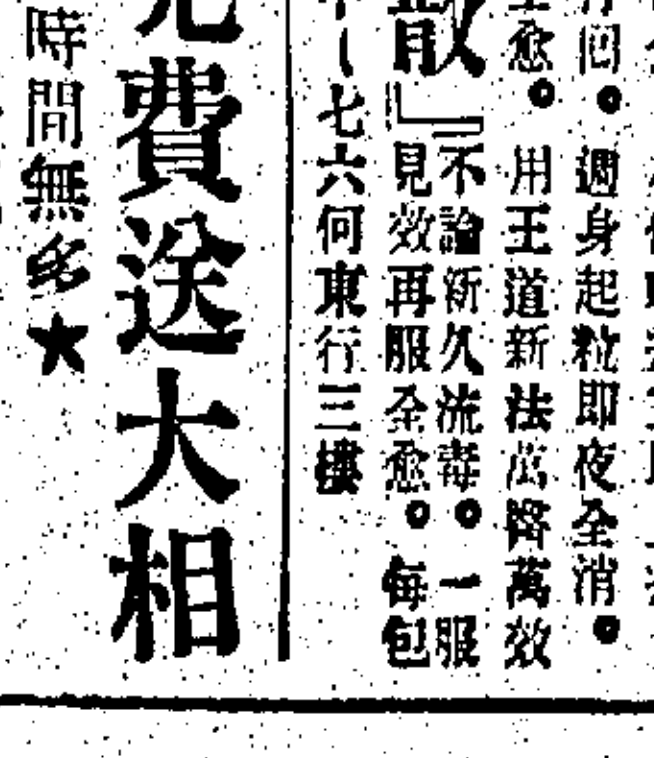 存問。週身起粒即夜全消。
全愈。用王道新法萬醫萬效
散』不論新久流毒。一服
見效再服全愈。每包
七六何東行三樓
費送大相
時間無多★